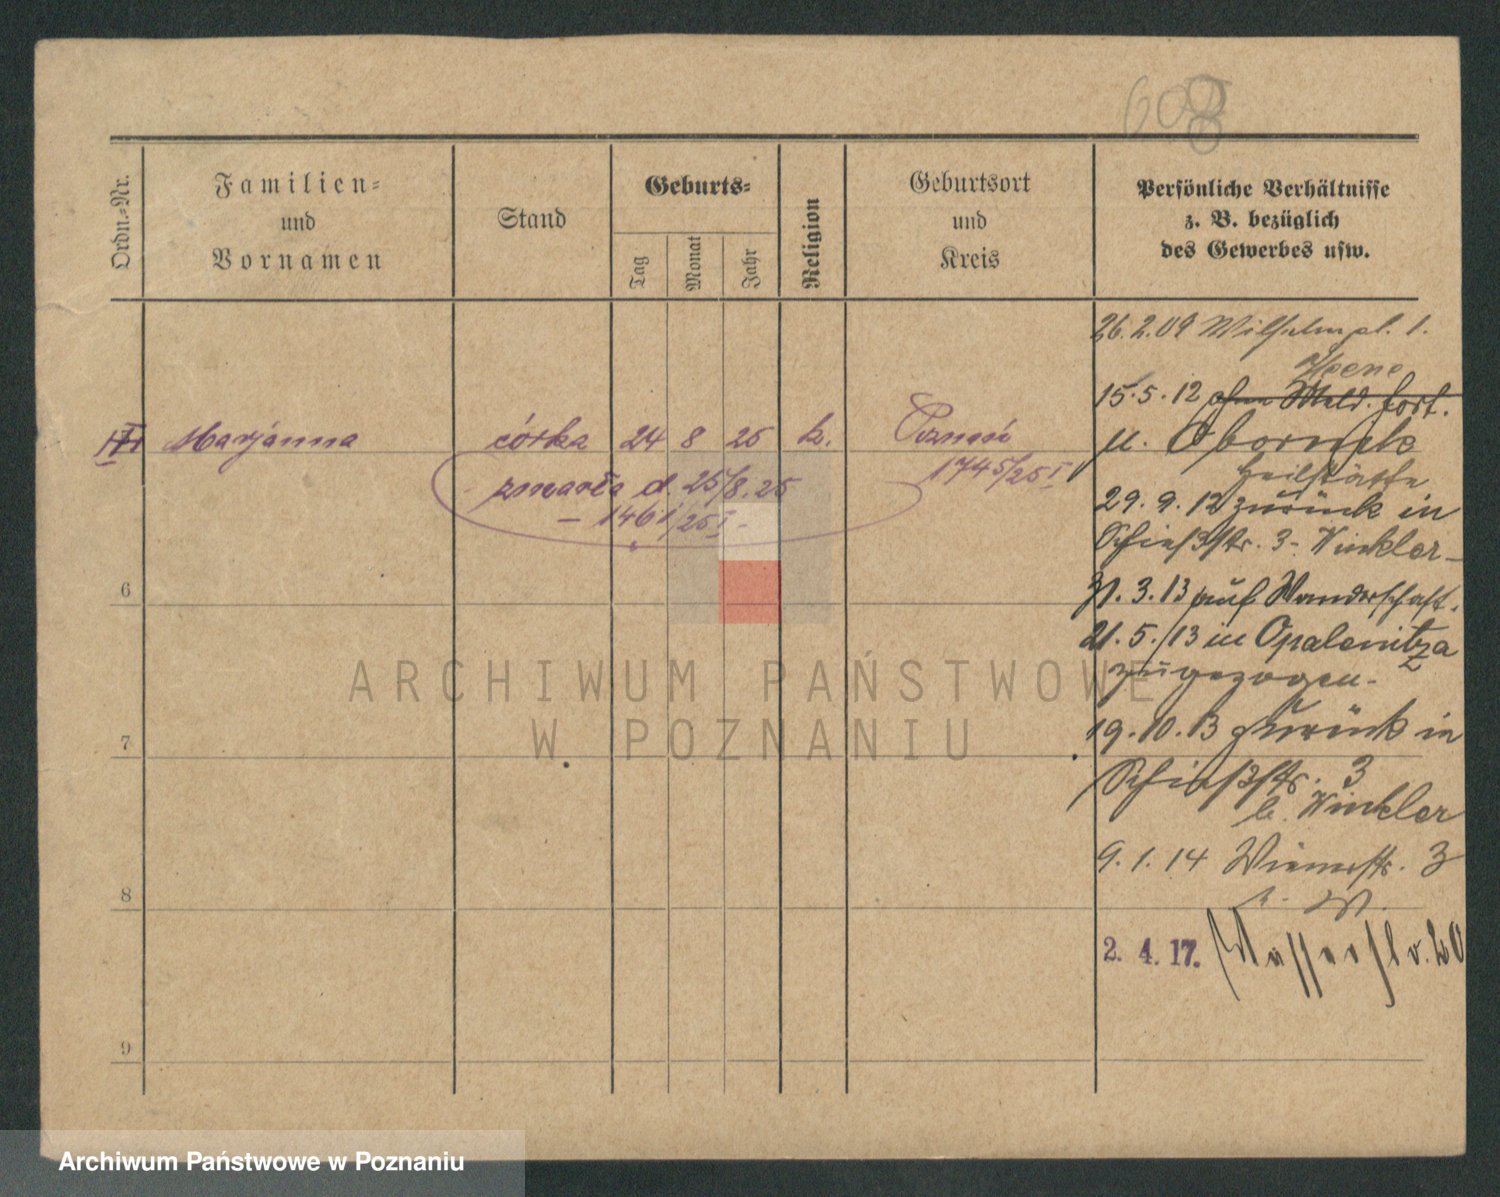 608
Ordn.-Nr.
Familien-
und
Vornamen
Stand
Geburts-
Tag
Monat
Jahr
Religion
Geburtsort
und
Kreis
Persönliche Verhältnisse
z. B. bezüglich
des Gewerbes usw.
III Marjanna córka 24 8 25 k. Poznań
1745/25 I
zmarła d. 25/8.25
– 1461/25 I –
6
7
8
9
26.2.09 Wilhelmpl. 1.
15.5.12 ohne Meld. fort.
n. Obornik
Heilstätte
29.9.12 zurück in
Schießstr. 3 - Winkler -
31.3.13 auf Wanderschaft.
21.5.13 in Opalenitza
zugezogen.
19.10.13 zurück in
Schießstr. 3
b. Winkler
9.1.14 Wienerstr. 3
b. W.
2. 4. 17. Wasserstr. 20
ARCHIWUM PAŃSTWOWE
W POZNANIU
Archiwum Państwowe w Poznaniu